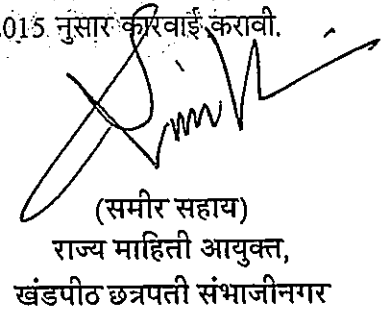 2015 नुसार कारवाई करावी.
(समीर सहाय)
राज्य माहिती आयुक्त,
खंडपीठ छत्रपती संभाजीनगर